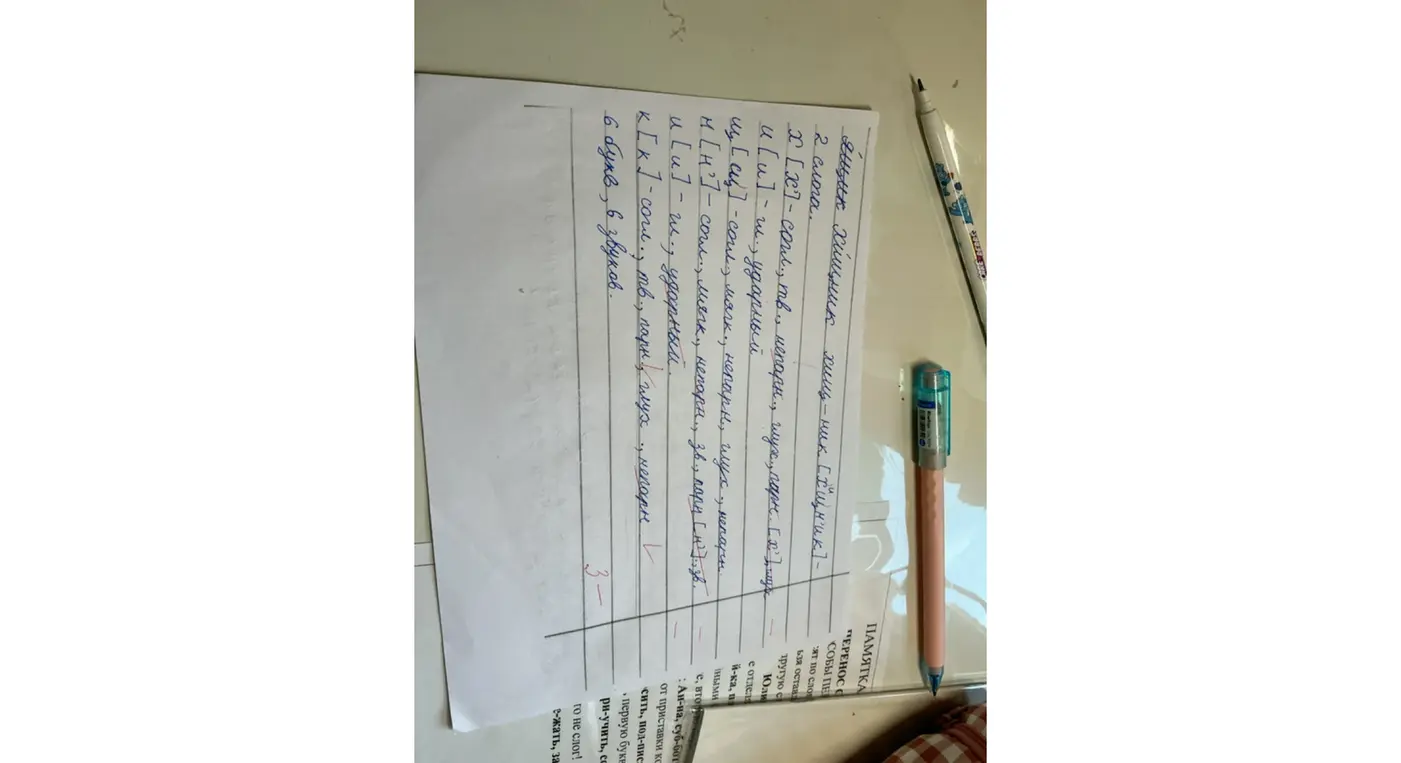 хищник хищ-ник [х'ищ'н'ик] -
2 слога.
х [х'] - согл., тв., непарн., глух., парн. [х'], глух
и [и] - гл., ударный
щ [щ'] - согл., мягк., непарн., глух., непарн.
н [н'] - согл., мягк., непарн., зв., парн [н'], зв.
и [и] - гл., ударный.
к [к] - согл., тв., парн, глух., непарн
6 букв, 6 звуков.
3 -
ПАМЯТКА
ПЕРЕНОС С
по слов
ьзя остав
другую с
Юли
е отделя
й-ка, п
ными
: Ан-на, суб-бот
от приставки ко
сить, под-пис
первую букв
ри-учить, ес
то не слог!
е-жать, за